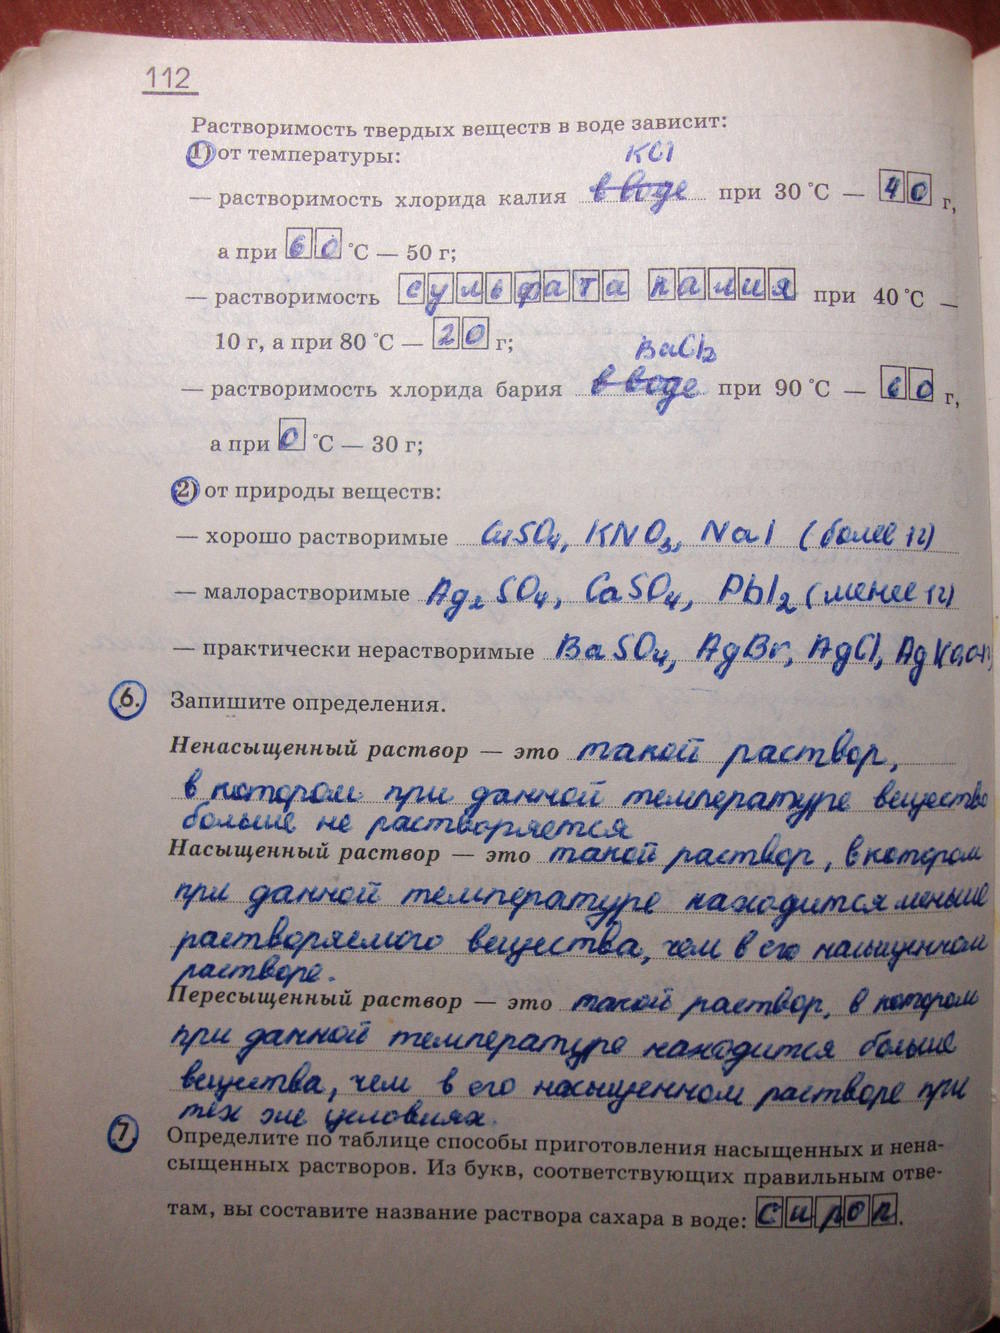 112
Растворимость твердых веществ в воде зависит:
1) от температуры:
KCl
— растворимость хлорида калия в воде при 30 °С — 40 г,
а при 60 °С — 50 г;
— растворимость сульфата калия при 40 °С —
10 г, а при 80 °С — 20 г;
BaCl2
— растворимость хлорида бария в воде при 90 °С — 60 г,
а при 0 °С — 30 г;
2) от природы веществ:
— хорошо растворимые CuSO4, KNO3, NaI (более 1г)
— малорастворимые Ag2SO4, CaSO4, PbI2 (менее 1г)
— практически нерастворимые BaSO4, AgBr, AgCl, AgI
6. Запишите определения.
Ненасыщенный раствор — это такой раствор,
в котором при данной температуре вещество
больше не растворяется
Насыщенный раствор — это такой раствор, в котором
при данной температуре находится меньше
растворяемого вещества, чем в его насыщенном
растворе.
Пересыщенный раствор — это такой раствор, в котором
при данной температуре находится больше
вещества, чем в его насыщенном растворе при
тех же условиях.
7 Определите по таблице способы приготовления насыщенных и нена-
сыщенных растворов. Из букв, соответствующих правильным отве-
там, вы составите название раствора сахара в воде: сироп.